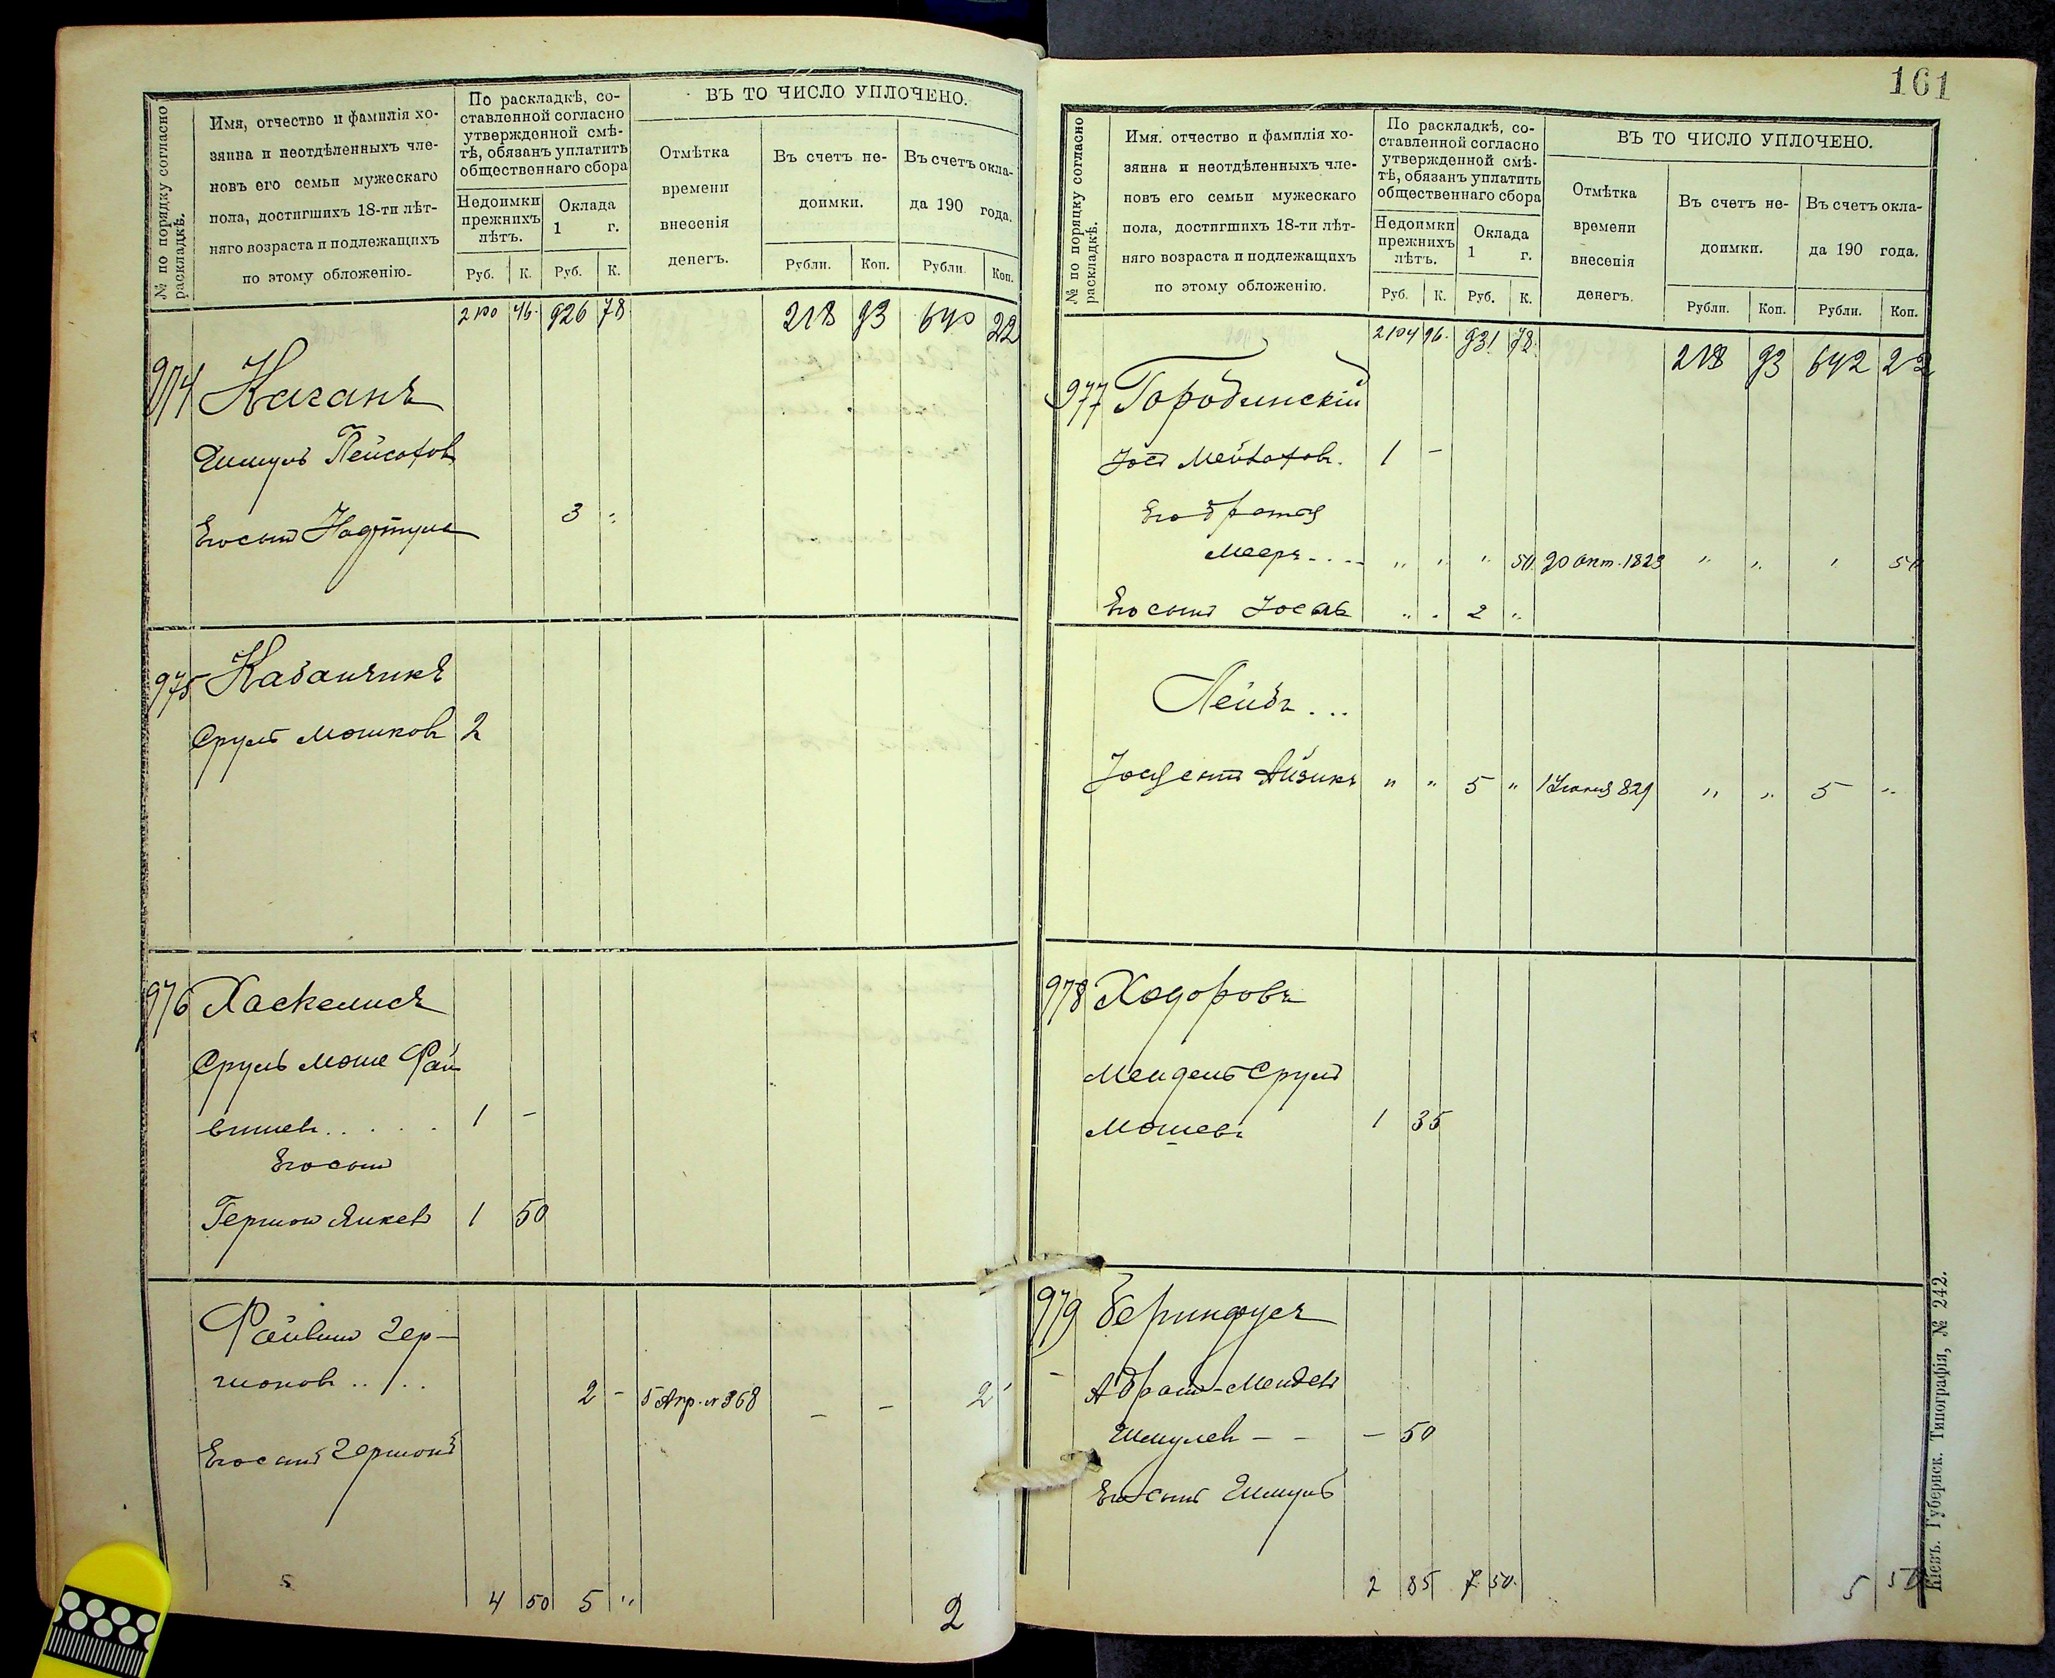 161
№ по порядку согласно раскладкѣ.
Имя, отчество и фамилія хо-
зяина и неотдѣленныхъ чле-
новъ его семьи мужескаго
пола, достигшихъ 18-ти лѣт-
няго возраста и подлежащихъ
по этому обложенію.
По раскладкѣ, со-
ставленной согласно
утвержденной смѣ-
тѣ, обязанъ уплатить
общественнаго сбора
Недоимки
прежнихъ
лѣтъ.
Оклада
1 г.
Руб. К. Руб. К.
ВЪ ТО ЧИСЛО УПЛОЧЕНО.
Отмѣтка
времени
внесенія
денегъ.
Въ счетъ не-
доимки.
Въ счетъ окла-
да 190 года.
Рубли. Коп. Рубли. Коп.
2100 46. 926 78 218 93 640 22
974 Каганъ
Шмуль Пейсахов
Его сынъ
3 "
975 Кабанчикъ
Сруль Мошков 2
976 Хаскелисъ
Сруль Моше Фай
вишев..... 1 -
Его сынъ
Гершон Янкев 1 50
Файвиш Гер-
шонов.... 2 - 5 Апр. № 368 - - 2
Его сынъ Гершонъ
4 50 5 " 2
№ по порядку согласно раскладкѣ.
Имя. отчество и фамилія хо-
зяина и неотдѣленныхъ чле-
новъ его семьи мужескаго
пола, достигшихъ 18-ти лѣт-
няго возраста и подлежащихъ
по этому обложенію.
По раскладкѣ, со-
ставленной согласно
утвержденной смѣ-
тѣ, обязанъ уплатить
общественнаго сбора
Недоимки
прежнихъ
лѣтъ.
Оклада
1 г.
Руб. К. Руб. К.
ВЪ ТО ЧИСЛО УПЛОЧЕНО.
Отмѣтка
времени
внесенія
денегъ.
Въ счетъ не-
доимки.
Въ счетъ окла-
да 190 года.
Рубли. Коп. Рубли. Коп.
2104 96. 931 78. 218 93 642 22
977 Городинскій
1 -
Его братъ
Мееръ.... " " " 50 20 окт. 1823 " " " 50
Его сынъ Іосель " " 2 "
Лейбъ...
Айзикъ " " 5 " 1 Іюня 829 " " 5 "
978 Ходоровъ
Мендель Сруль
Мошевъ 1 35
979 Беринфусъ
Абрам-Мендель
Шмулев - - - 50
Его сынъ Шмуль
2 85 7 50. 5 50
Кіевъ. Губернск. Типографія, № 242.